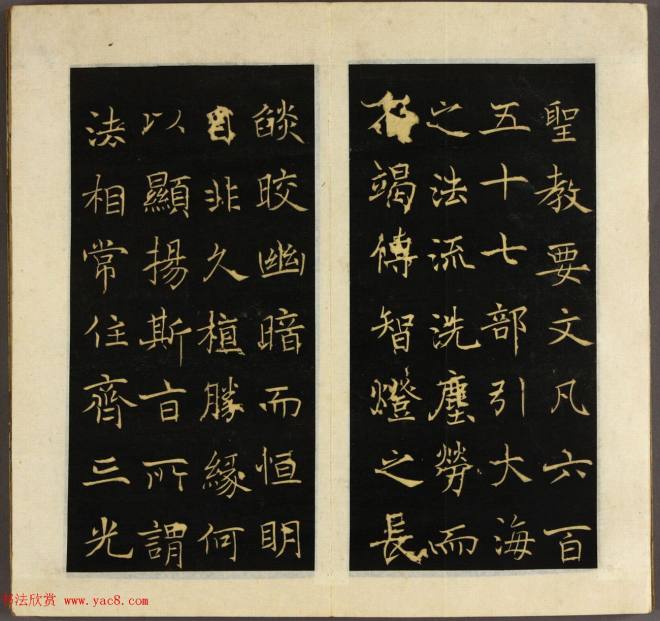 聖教要文凡六百
五十七部引大海
之法流洗塵勞而
不竭傳智燈之長
燄晈幽暗而恒明
自非久植勝緣何
以顯揚斯旨所謂
法相常住齊三光
书法欣赏 www.yac8.com